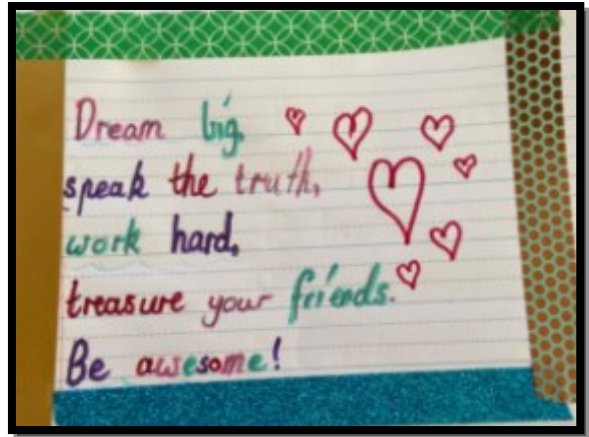 Dream big,
speak the truth,
work hard,
treasure your friends.
Be awesome!